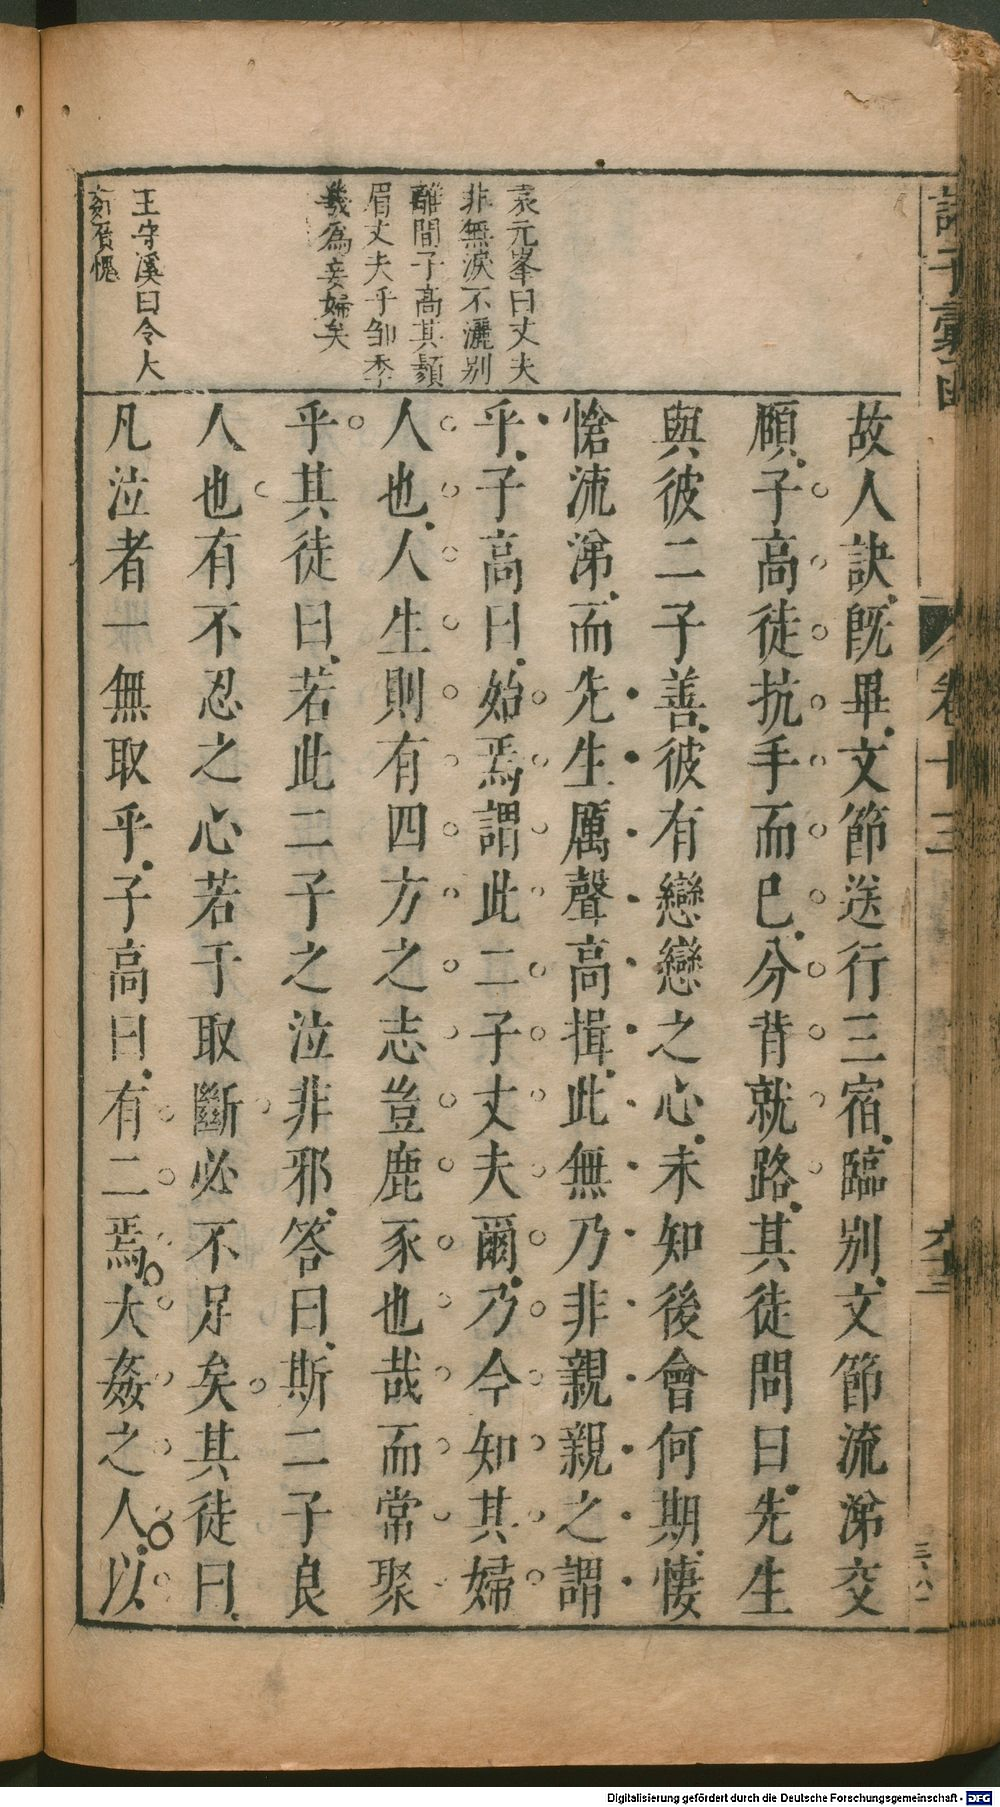 諸子彙函
卷十三
故人訣既畢文節送行三宿臨別文節流涕交
頤子高徒抗手而已分背就路其徒問曰先生
與彼二子善彼有戀戀之心未知後會何期悽
愴流涕而先生厲聲高揖此無乃非親親之謂
乎子高曰始焉謂此二子丈夫爾乃今知其婦
人也人生則有四方之志豈鹿豕也哉而常聚
乎其徒曰若此二子之泣非邪答曰斯二子良
人也有不忍之心若于取斷必不足矣其徒曰
凡泣者一無取乎子高曰有二焉大姦之人以
袁元峯曰丈夫
非無淚不灑別
離間子高其鬚
眉丈夫乎鄒季
幾為妾婦矣
王守溪曰令大
姦眉愧
Digitalisierung gefördert durch die Deutsche Forschungsgemeinschaft - DFG